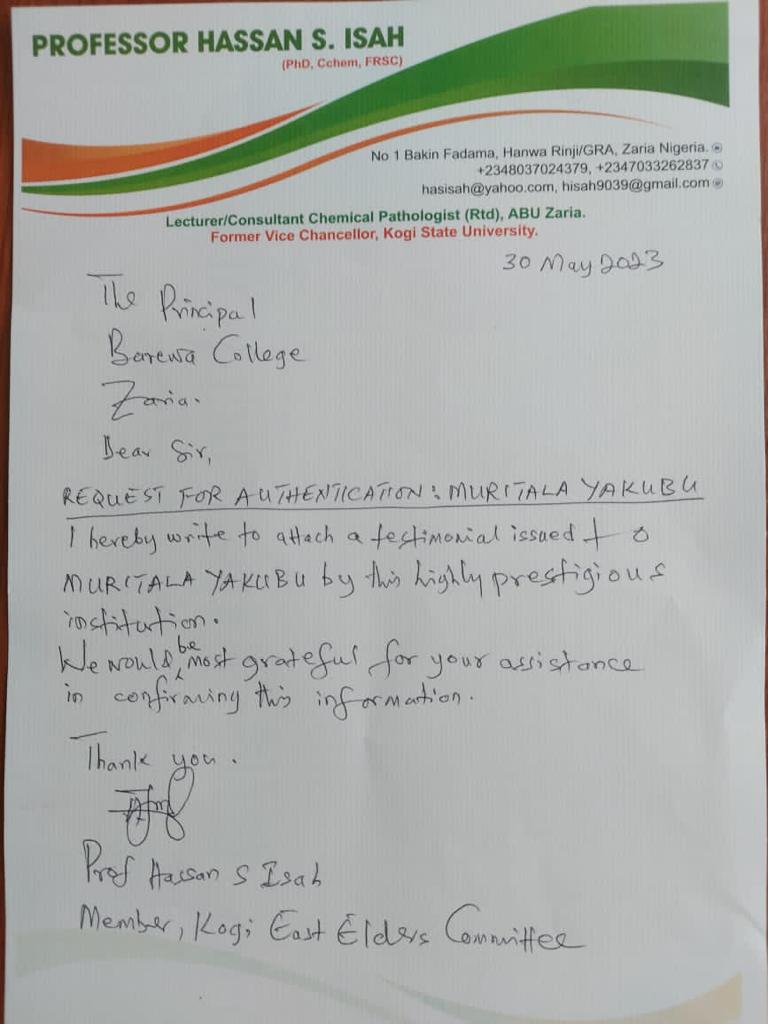 PROFESSOR HASSAN S. ISAH
(PhD, Cchem, FRSC)
No 1 Bakin Fadama, Hanwa Rinji/GRA, Zaria Nigeria.
+2348037024379, +2347033262837
hasisah@yahoo.com, hisah9039@gmail.com
Lecturer/Consultant Chemical Pathologist (Rtd), ABU Zaria.
Former Vice Chancellor, Kogi State University.
30 May 2023
The Principal
Barewa College
Zaria.
Dear Sir,
REQUEST FOR AUTHENTICATION: MURITALA YAKUBU
I hereby write to attach a testimonial issued to
MURITALA YAKUBU by this highly prestigious
institution.
We would be most grateful for your assistance
in confirming this information.
Thank you.
Prof Hassan S Isah
Member, Kogi East Elders Committee